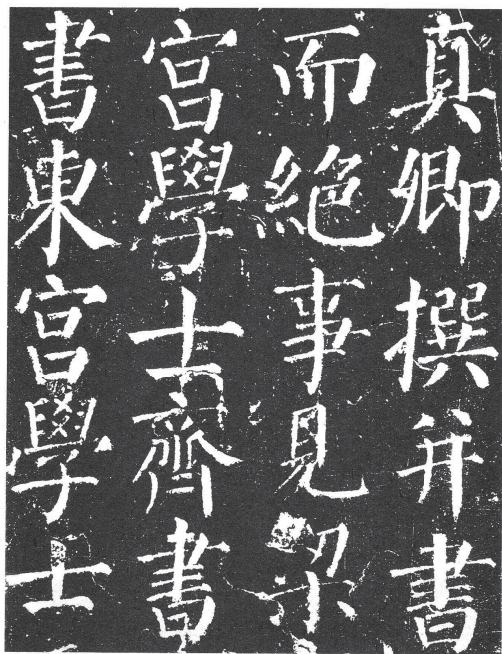 真卿撰并書
而絶事見梁
宮學士齊書
書東宮學士